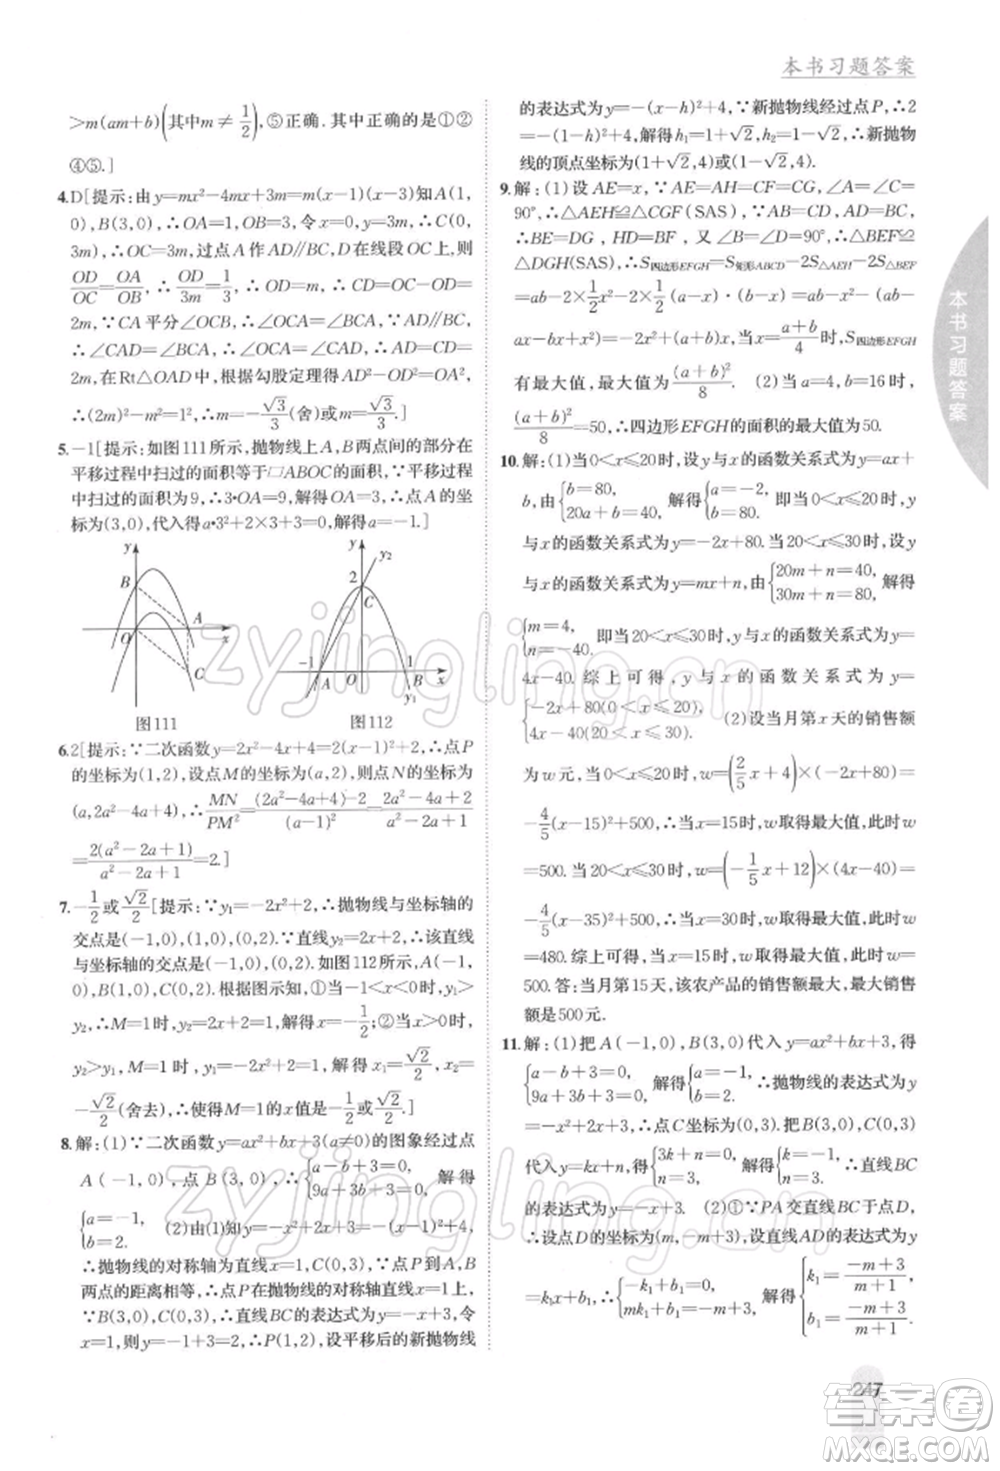 本书习题答案
>m(am+b)(其中m≠1/2),⑤正确.其中正确的是①②
④⑤.]
4.D[提示:由y=mx²-4mx+3m=m(x-1)(x-3)知A(1,
0),B(3,0),∴OA=1,OB=3,令x=0,y=3m,∴C(0,
3m),∴OC=3m,过点A作AD∥BC,D在线段OC上,则
OD/OC=OA/OB,∴OD/3m=1/3,∴OD=m,∴CD=OC-OD=
2m,∵CA平分∠OCB,∴∠OCA=∠BCA,∵AD∥BC,∴
∠CAD=∠BCA,∴∠CAD=∠OCA,∴AD=CD,∴AD=
2m,在Rt△OAD中,根据勾股定理得AD²-OD²=OA²,
∴(2m)²-m²=1²,∴m=-√3/3(舍)或m=√3/3.]
5.-1[提示:如图111所示,抛物线上A,B两点间的部分在
平移过程中扫过的面积等于□ABOC的面积,∵平移过程
中扫过的面积为9,∴3·OA=9,解得OA=3,∴点A的坐
标为(3,0),代入得a·3²+2×3+3=0,解得a=-1.]
y
B
O
A
x
C
图111
y
y₂
2
C
-1
A
O
1
B
x
y₁
图112
6.2[提示:∵二次函数y=2x²-4x+4=2(x-1)²+2,∴点P
的坐标为(1,2),设点M的坐标为(a,2),则点N的坐标为
(a,2a²-4a+4),∴MN/PM²=(2a²-4a+4)-2/(a-1)²=2a²-4a+2/a²-2a+1
=2(a²-2a+1)/a²-2a+1=2.]
7.-1/2或√2/2[提示:∵y₁=-2x²+2,∴抛物线与坐标轴的
交点是(-1,0),(1,0),(0,2).∵直线y₂=2x+2,∴该直线
与坐标轴的交点是(-1,0),(0,2),如图112所示,A(-1,
0),B(1,0),C(0,2).根据图示知,①当-1<x<0时,y₁>
y₂,∴M=1时,y₂=2x+2=1,解得x=-1/2;②当x>0时,
y₂>y₁,M=1时,y₁=-2x²+2=1,解得x=√2/2,x=
-√2/2(舍去),∴使得M=1的x值是-1/2或√2/2.]
8.解:(1)∵二次函数y=ax²+bx+3(a≠0)的图象经过点
A(-1,0),点B(3,0),∴{a-b+3=0, 9a+3b+3=0, 解得
{a=-1, b=2. (2)由(1)知y=-x²+2x+3=-(x-1)²+4,
∴抛物线的对称轴为直线x=1,C(0,3).∵点P到A,B
两点的距离相等,∴点P在抛物线的对称轴直线x=1上,
∵B(3,0),C(0,3),∴直线BC的表达式为y=-x+3,令
x=1,则y=-1+3=2,∴P(1,2),设平移后的新抛物线
的表达式为y=-(x-h)²+4,∵新抛物线经过点P,∴2
=-(1-h)²+4,解得h₁=1+√2,h₂=1-√2,∴新抛物
线的顶点坐标为(1+√2,4)或(1-√2,4).
9.解:(1)设AE=x,∵AE=AH=CF=CG,∠A=∠C=
90°,∴△AEH≌△CGF(SAS),∵AB=CD,AD=BC,
∴BE=DG,HD=BF,又∠B=∠D=90°,∴△BEF≌
△DGH(SAS),∴S四边形EFGH=S矩形ABCD-2S△AEH-2S△BEF
=ab-2×1/2x²-2×1/2(a-x)(b-x)=ab-x²-(ab-
ax-bx+x²)=-2x²+(a+b)x,当x=a+b/4时,S四边形EFGH
有最大值,最大值为(a+b)²/8. (2)当a=4,b=16时,
(a+b)²/8=50,∴四边形EFGH的面积的最大值为50.
10.解:(1)当0<x≤20时,设y与x的函数关系式为y=ax+
b,由{b=80, 20a+b=40, 解得{a=-2, b=80. 即当0<x≤20时,y
与x的函数关系式为y=-2x+80.当20<x≤30时,设y
与x的函数关系式为y=mx+n,由{20m+n=40, 30m+n=80, 解得
{m=4, n=-40. 即当20<x≤30时,y与x的函数关系式为y=
4x-40.综上可得,y与x的函数关系式为y=
{-2x+80(0<x≤20), 4x-40(20<x≤30). (2)设当月第x天的销售额
为w元,当0<x≤20时,w=(2/5x+4)×(-2x+80)=
-4/5(x-15)²+500,∴当x=15时,w取得最大值,此时w
=500.当20<x≤30时,w=(-1/5x+12)×(4x-40)=
-4/5(x-35)²+500,∴当x=30时,w取得最大值,此时w
=480.综上可得,当x=15时,w取得最大值,此时w=
500.答:当月第15天,该农产品的销售额最大,最大销售
额是500元.
11.解:(1)把A(-1,0),B(3,0)代入y=ax²+bx+3,得
{a-b+3=0, 9a+3b+3=0, 解得{a=-1, b=2. ∴抛物线的表达式为y
=-x²+2x+3,∴点C坐标为(0,3).把B(3,0),C(0,3)
代入y=kx+n,得{3k+n=0, n=3, 解得{k=-1, n=3. ∴直线BC
的表达式为y=-x+3. (2)①∵PA交直线BC于点D,
∴设点D的坐标为(m,-m+3),设直线AD的表达式为y
=k₁x+b₁,∴{-k₁+b₁=0, mk₁+b₁=-m+3, 解得{k₁=-m+3/m+1, b₁=-m+3/m+1.
本书习题答案
247
zyjingling.cn
zyjingling.cn
答案圈
MXQE.COM